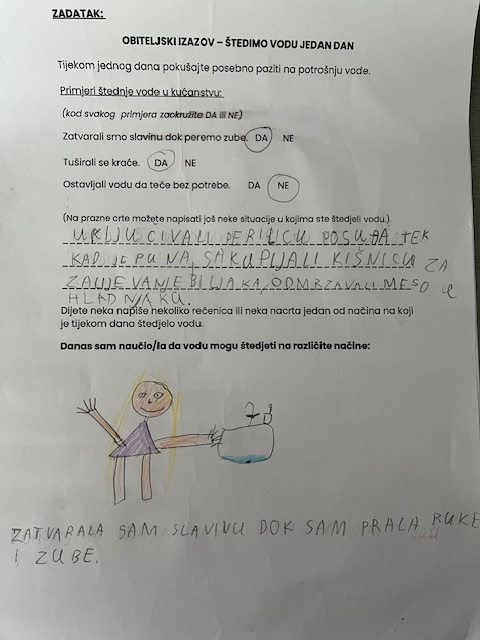 ZADATAK:
OBITELJSKI IZAZOV – ŠTEDIMO VODU JEDAN DAN
Tijekom jednog dana pokušajte posebno paziti na potrošnju vode.
Primjeri štednje vode u kućanstvu:
(kod svakog primjera zaokružite DA ili NE)
Zatvarali smo slavinu dok peremo zube. DA NE
Tuširali se kraće. DA NE
Ostavljali vodu da teče bez potrebe. DA NE
(Na prazne crte možete napisati još neke situacije u kojima ste štedjeli vodu.)
UKLJUČIVALI PERILICU POSUĐA TEK
KAD JE PUNA, SAKUPLJALI KIŠNICU ZA
ZALIJEVANJE BILJAKA, ODMRZAVALI MESO U
HLADNJAKU.
Dijete neka napiše nekoliko rečenica ili neka nacrta jedan od načina na koji
je tijekom dana štedjelo vodu.
Danas sam naučio/la da vodu mogu štedjeti na različite načine:
ZATVARALA SAM SLAVINU DOK SAM PRALA RUKE
I ZUBE.